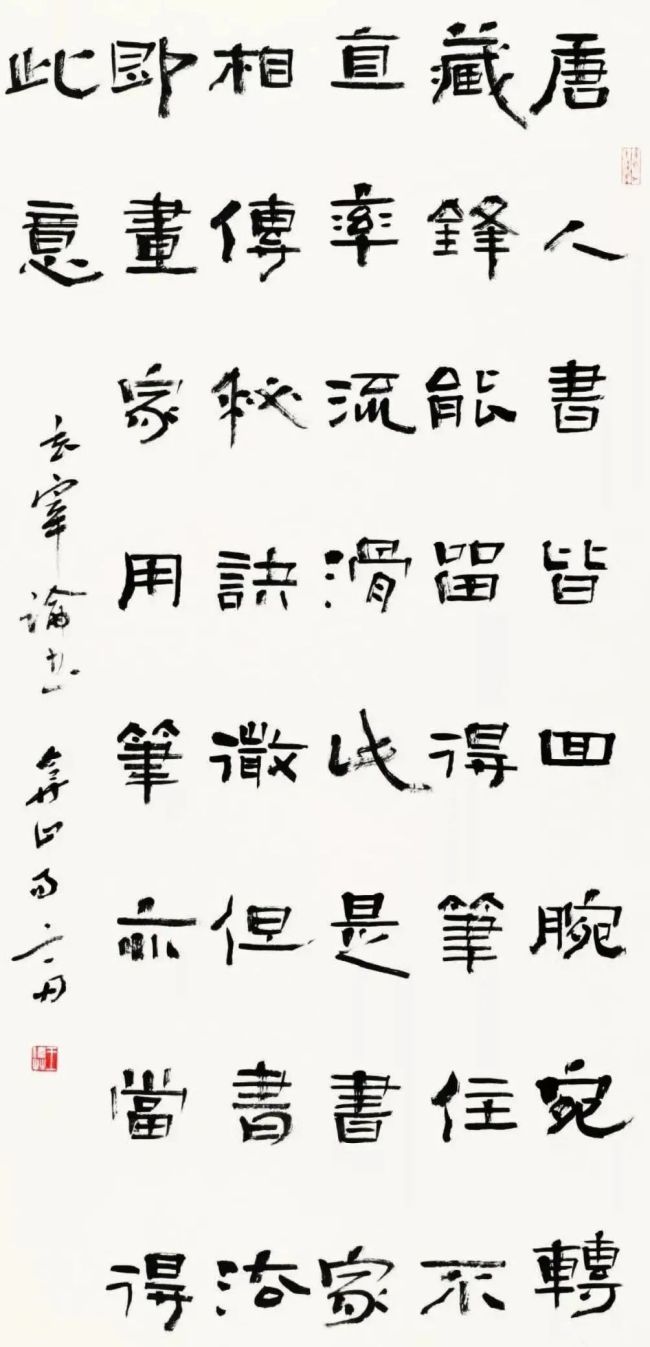 唐人書皆回腕宛轉
藏鋒能留得筆住不
直率流滑此是書家
相傳秘訣微但書法
即畫家用筆亦當得
此意
玄宰論書